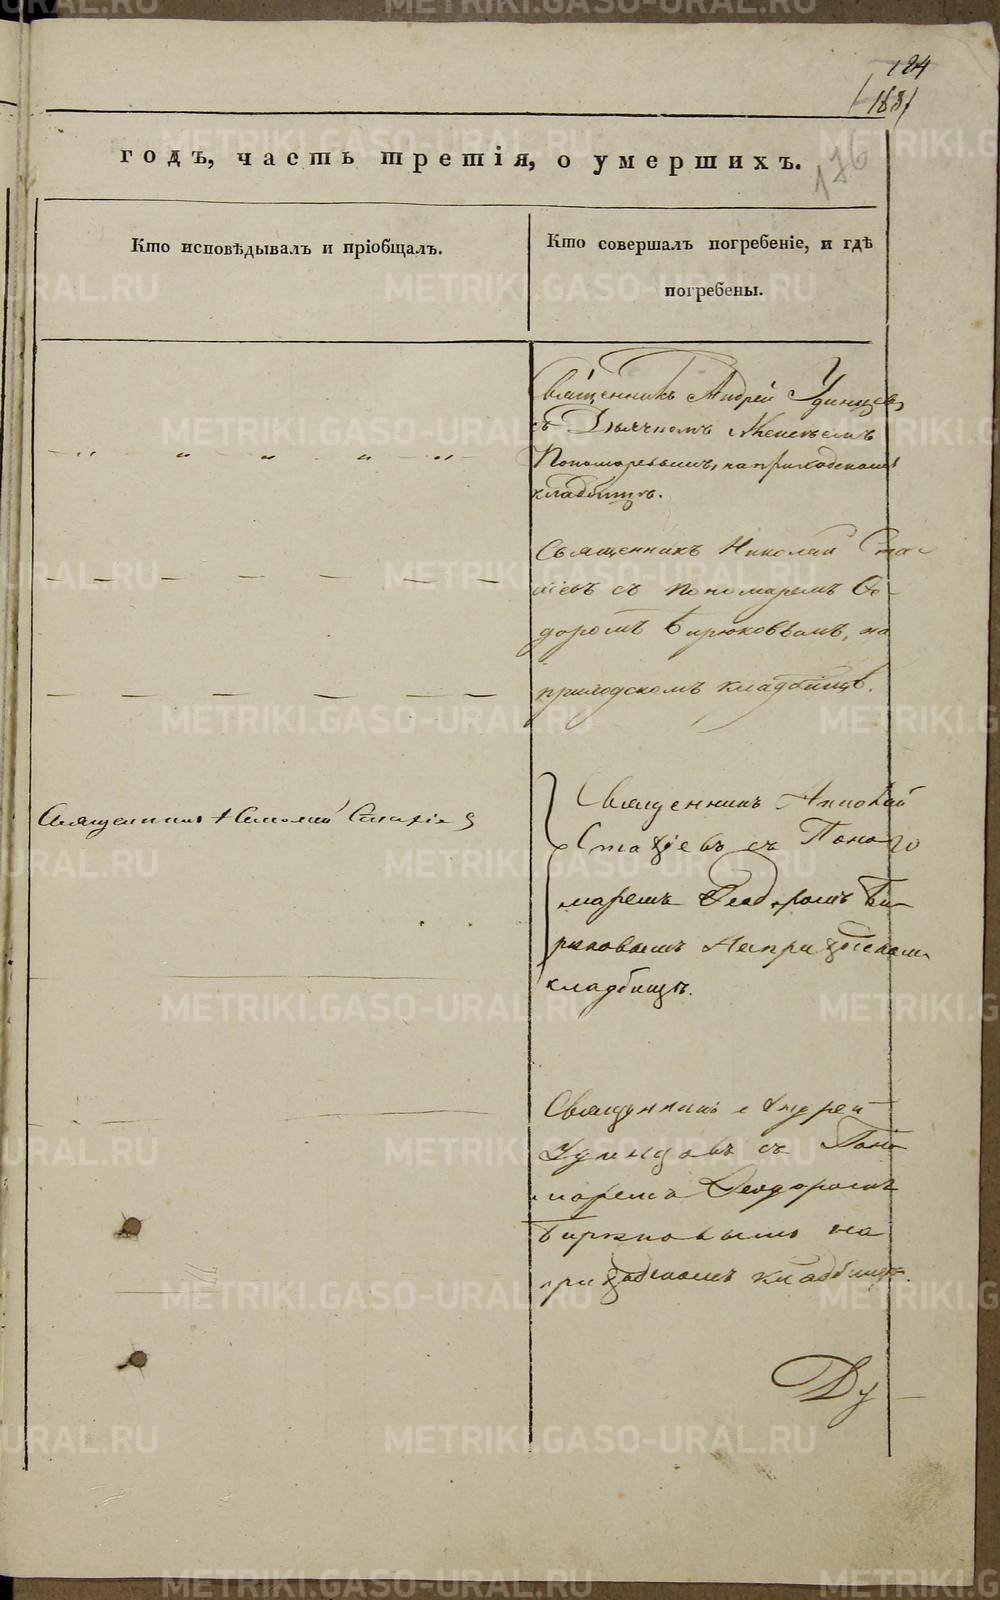 184
176
годъ, часть третія, о умершихъ.
Кто исповѣдывалъ и пріобщалъ.
Кто совершалъ погребеніе, и гдѣ
погребены.
Священникъ Андрей Удинцевъ,
съ Дьячкомъ
Пономаревымъ, на приходскомъ
кладбищѣ.
Священникъ Николай Ста-
хіевъ съ пономаремъ Ѳе-
доромъ Бирюковымъ, на
приходскомъ кладбищѣ.
Священникъ Николай Стахіев
Священникъ Николай
Стахіевъ съ Поно
маремъ Ѳеодоромъ Би-
рюковымъ На приходскомъ
кладбищѣ.
Священникъ Андрей
Удинцовъ съ Поно
маремъ Ѳеодоромъ
Бирюковымъ на
приходскомъ кладбищѣ.
Ду
METRIKI.GASO-URAL.RU